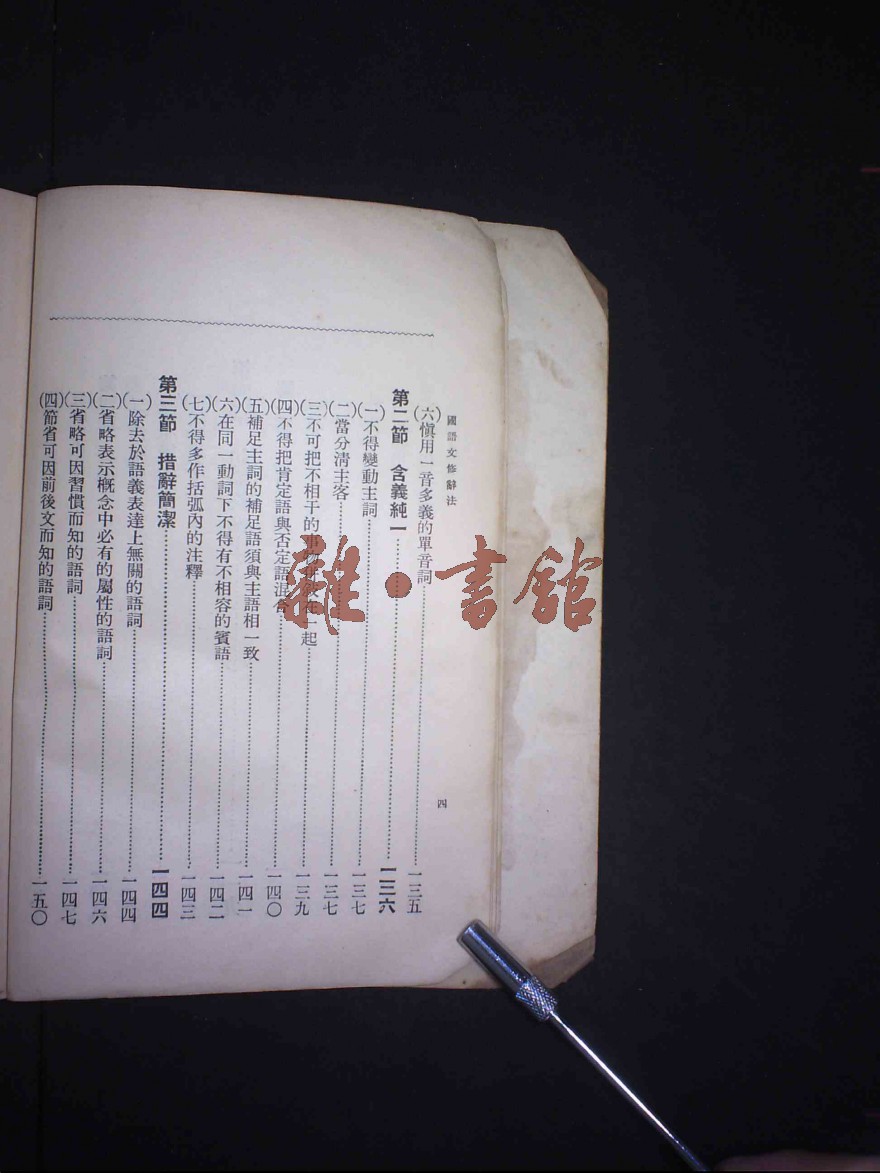 國語文修辭法
四
(六)愼用一音多義的單音詞……一三五
第二節 含義純一……一三六
(一)不得變動主詞……一三七
(二)當分淸主客……一三七
(三)不可把不相干的事物 在一起……一三九
(四)不得把肯定語與否定語混合……一四〇
(五)補足主詞的補足語須與主語相一致……一四一
(六)在同一動詞下不得有不相容的賓語……一四二
(七)不得多作括弧內的注釋……一四三
第三節 措辭簡潔……一四四
(一)除去於語義表達上無關的語詞……一四四
(二)省略表示概念中必有的屬性的語詞……一四六
(三)省略可因習慣而知的語詞……一四七
(四)節省可因前後文而知的語詞……一五〇
雜·書館